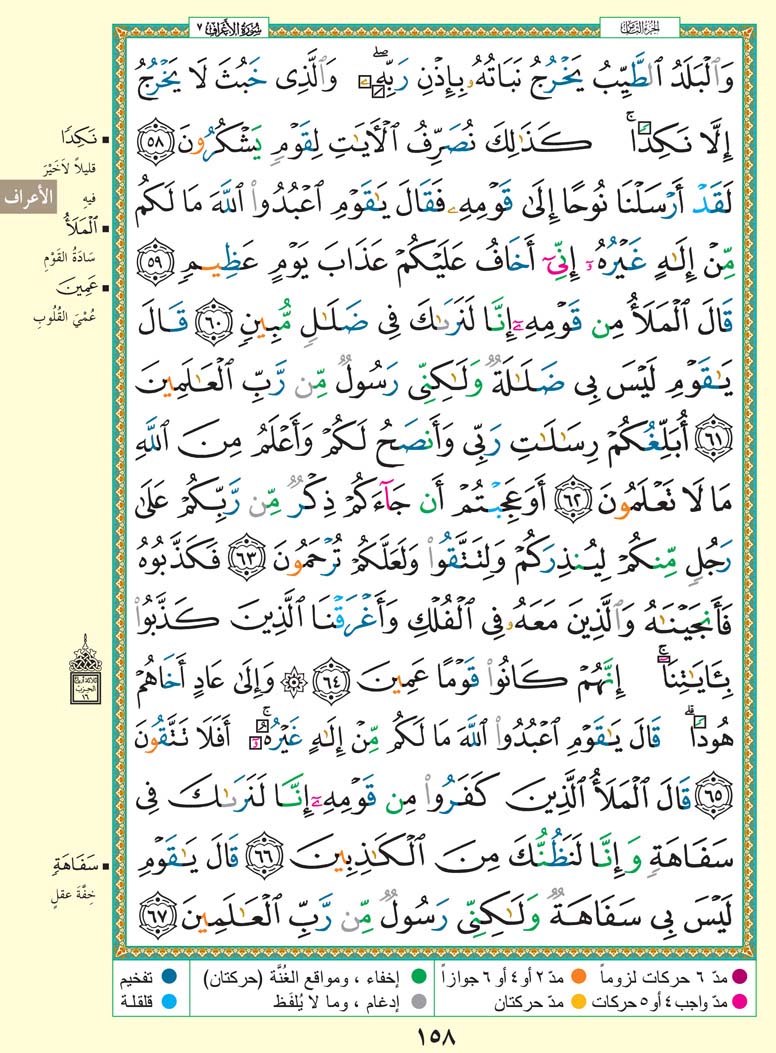 سُورَةُ الأَعْرَافِ ٧
الجزء الثامن
وَٱلْبَلَدُ ٱلطَّيِّبُ يَخْرُجُ نَبَاتُهُۥ بِإِذْنِ رَبِّهِۦ ۖ وَٱلَّذِى خَبُثَ لَا يَخْرُجُ
إِلَّا نَكِدًا ۚ كَذَٰلِكَ نُصَرِّفُ ٱلْأَيَٰتِ لِقَوْمٍ يَشْكُرُونَ ٥٨
لَقَدْ أَرْسَلْنَا نُوحًا إِلَىٰ قَوْمِهِۦ فَقَالَ يَٰقَوْمِ ٱعْبُدُوا۟ ٱللَّهَ مَا لَكُم
مِّنْ إِلَٰهٍ غَيْرُهُۥٓ إِنِّىٓ أَخَافُ عَلَيْكُمْ عَذَابَ يَوْمٍ عَظِيمٍ ٥٩
قَالَ ٱلْمَلَأُ مِن قَوْمِهِۦٓ إِنَّا لَنَرَىٰكَ فِى ضَلَٰلٍ مُّبِينٍ ٦٠ قَالَ
يَٰقَوْمِ لَيْسَ بِى ضَلَٰلَةٌ وَلَٰكِنِّى رَسُولٌ مِّن رَّبِّ ٱلْعَٰلَمِينَ
٦١ أُبَلِّغُكُمْ رِسَٰلَٰتِ رَبِّى وَأَنصَحُ لَكُمْ وَأَعْلَمُ مِنَ ٱللَّهِ
مَا لَا تَعْلَمُونَ ٦٢ أَوَعَجِبْتُمْ أَن جَآءَكُمْ ذِكْرٌ مِّن رَّبِّكُمْ عَلَىٰ
رَجُلٍ مِّنكُمْ لِيُنذِرَكُمْ وَلِتَتَّقُوا۟ وَلَعَلَّكُمْ تُرْحَمُونَ ٦٣ فَكَذَّبُوهُ
فَأَنجَيْنَٰهُ وَٱلَّذِينَ مَعَهُۥ فِى ٱلْفُلْكِ وَأَغْرَقْنَا ٱلَّذِينَ كَذَّبُوا۟
بِـَٔايَٰتِنَآ ۚ إِنَّهُمْ كَانُوا۟ قَوْمًا عَمِينَ ٦٤ ۞ وَإِلَىٰ عَادٍ أَخَاهُمْ
هُودًا ۗ قَالَ يَٰقَوْمِ ٱعْبُدُوا۟ ٱللَّهَ مَا لَكُم مِّنْ إِلَٰهٍ غَيْرُهُۥٓ ۚ أَفَلَا تَتَّقُونَ
٦٥ قَالَ ٱلْمَلَأُ ٱلَّذِينَ كَفَرُوا۟ مِن قَوْمِهِۦٓ إِنَّا لَنَرَىٰكَ فِى
سَفَاهَةٍ وَإِنَّا لَنَظُنُّكَ مِنَ ٱلْكَٰذِبِينَ ٦٦ قَالَ يَٰقَوْمِ
لَيْسَ بِى سَفَاهَةٌ وَلَٰكِنِّى رَسُولٌ مِّن رَّبِّ ٱلْعَٰلَمِينَ ٦٧
نَكِدًا
قليلاً لاَخَيْرَ
فيهِ
ٱلْمَلَأُ
سَادَةُ القَوْمِ
عَمِينَ
عُمْيَ القُلُوبِ
الأعراف
ثلاثة أرباع
الحزب
١٦
سَفَاهَةٍ
خِفَّةَ عقلٍ
مدّ ٦ حركات لزوماً مدّ ٢ أو ٤ أو ٦ جوازاً إخفاء ، ومواقع الغُنَّة (حركتان) تفخيم
مدّ واجب ٤ أو ٥ حركات مدّ حركتان إدغام ، وما لا يُلفَظ قلقلة
١٥٨